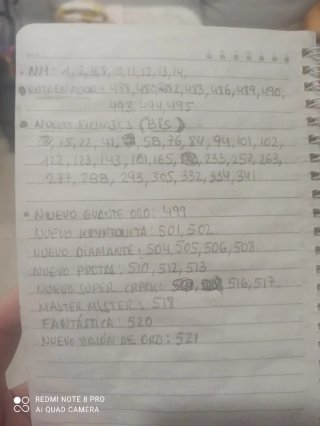 • AIM: 1, 2, 4, 8, 10, 11, 12, 13, 14,
• ENTRENADOR: 478, 480, 482, 483, 486, 489, 490,
493, 494, 495
• NUEVOS FICHAJES (BIS)
15, 22, 41, 58, 76, 84, 94, 101, 102,
122, 123, 143, 161, 165, 233, 252, 263,
277, 288, 293, 305, 332, 334, 341
• NUEVO GUANTE ORO: 499
NUEVO KRYPTONITA: 501, 502
NUEVO DIAMANTE: 504, 505, 506, 508.
NUEVO PROTAS: 510, 512, 513
NUEVO SUPER CRACK: 516, 517.
MASTER MISTER: 518
FANTÁSTICA: 520
NUEVO BALÓN DE ORO: 521
REDMI NOTE 8 PRO
AI QUAD CAMERA